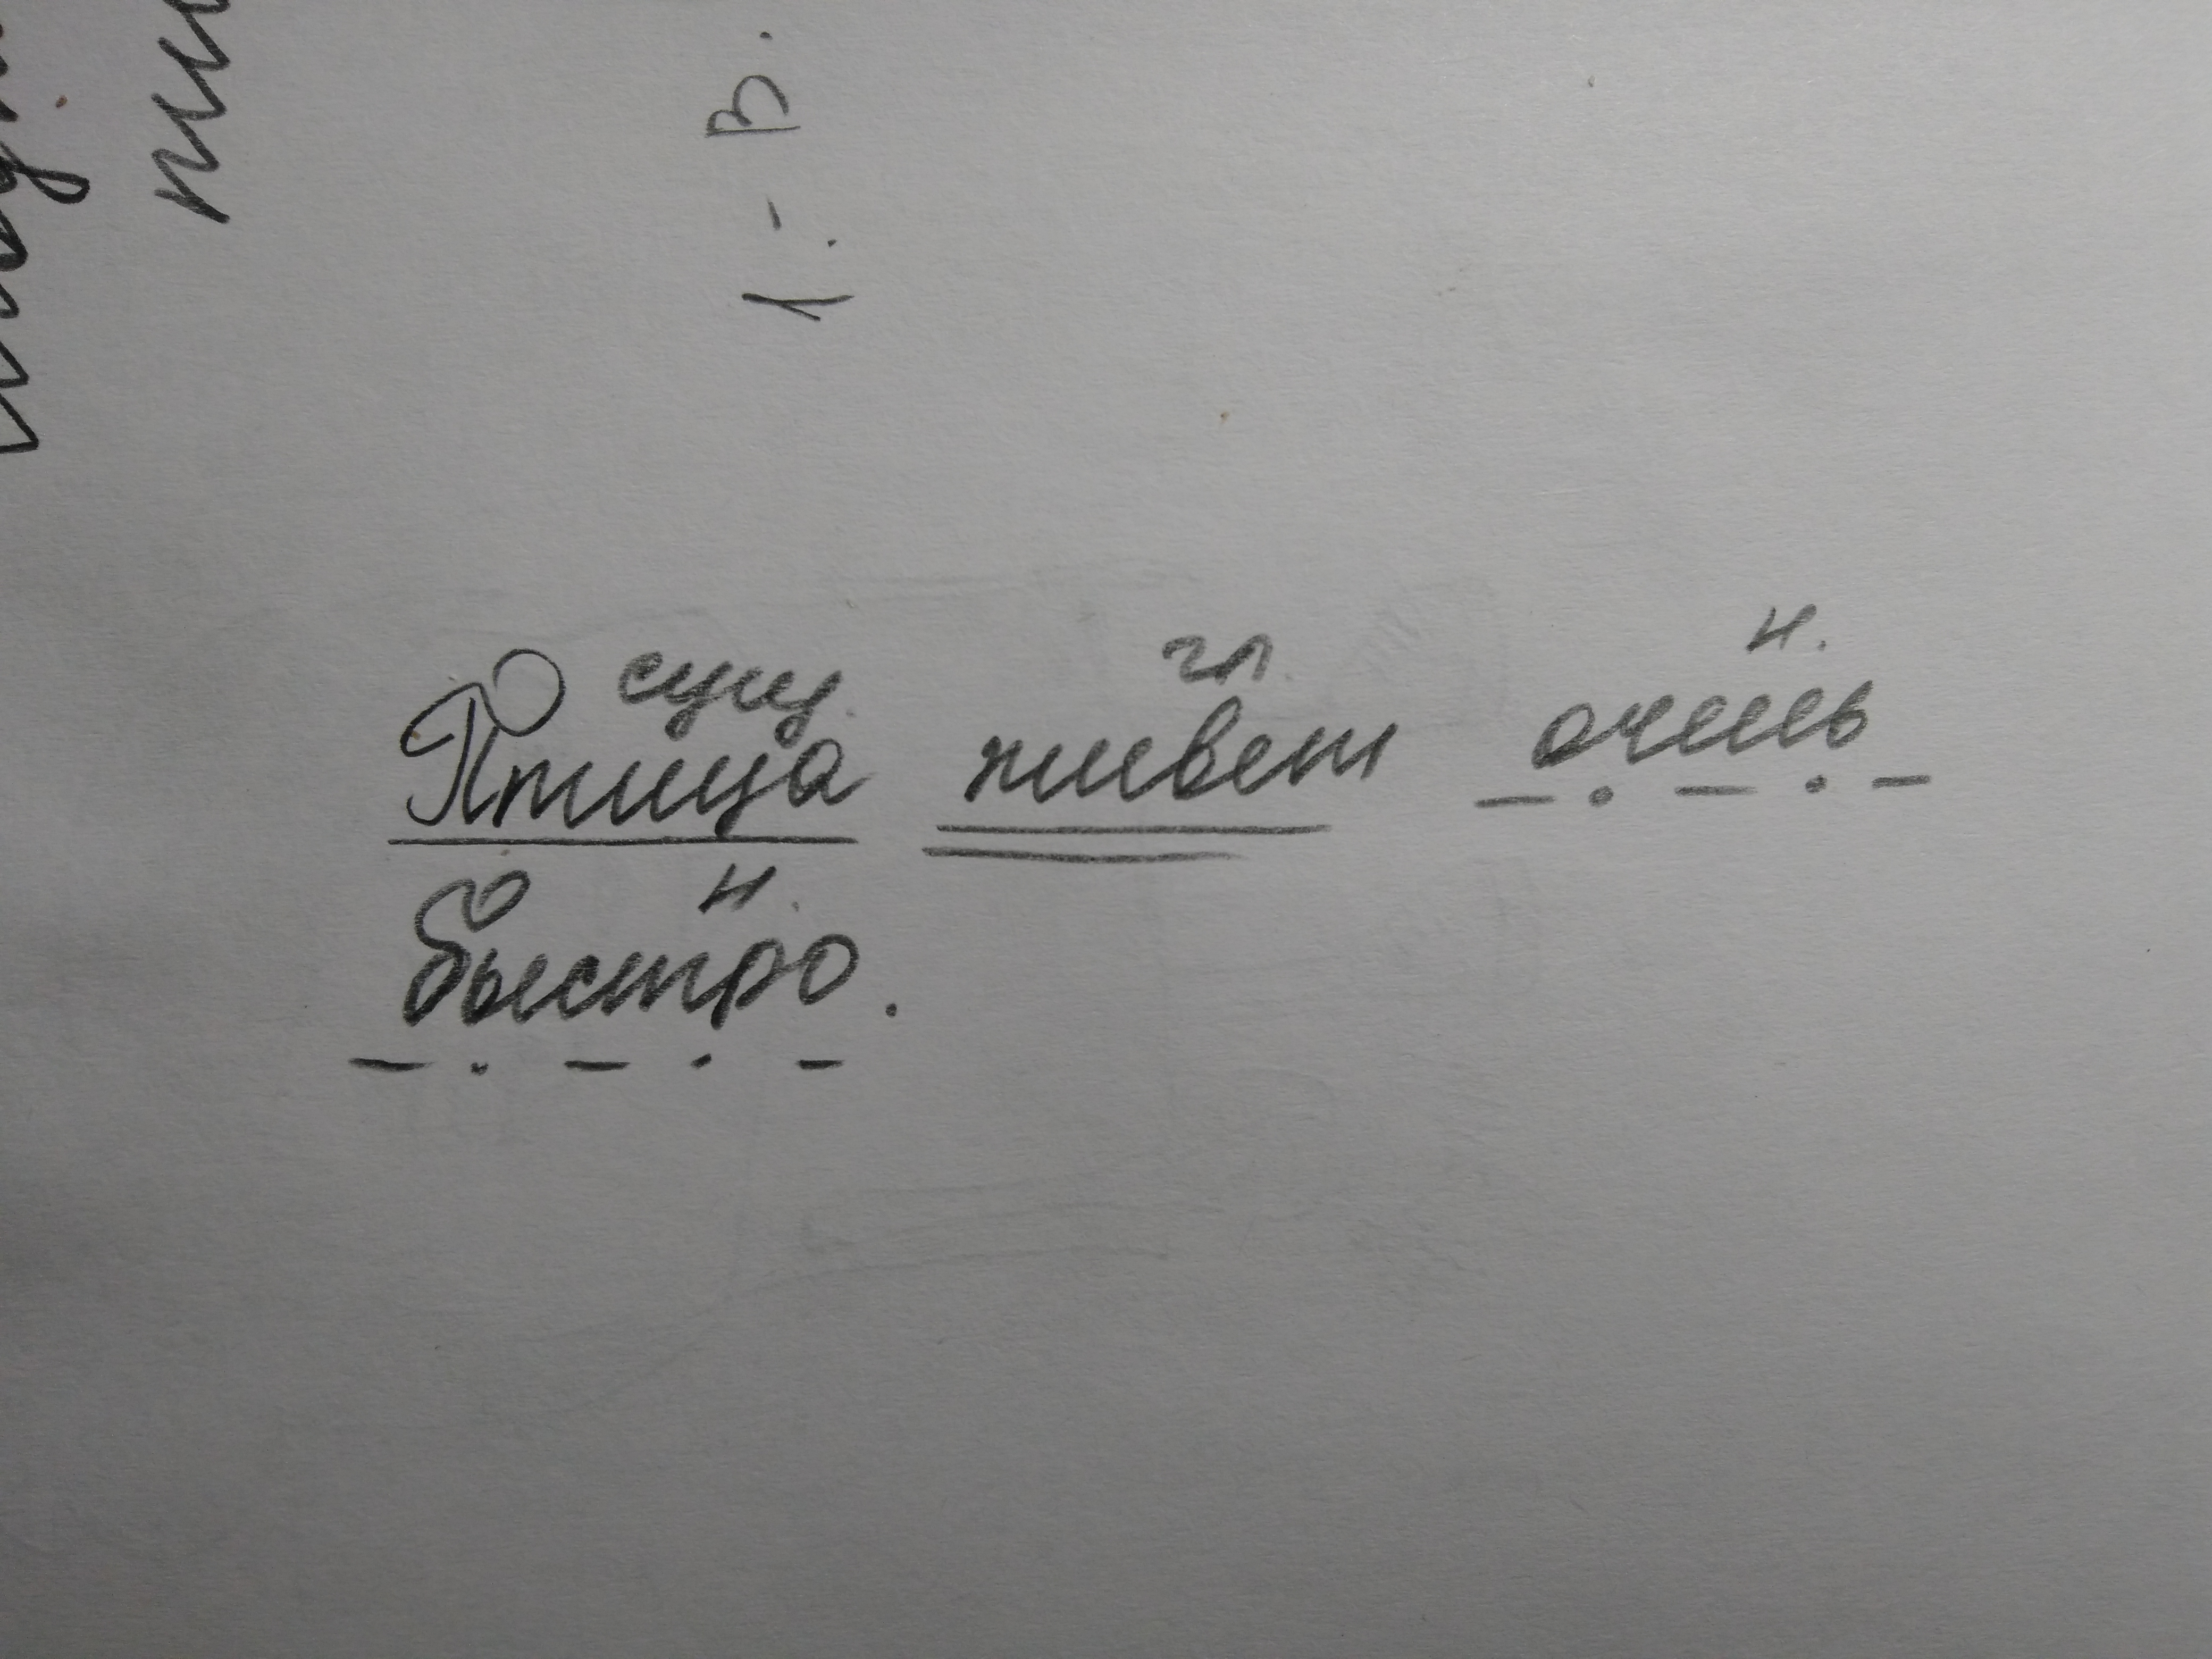 1. - В.
сущ. гл. н.
Птица живет очень
н.
быстро.